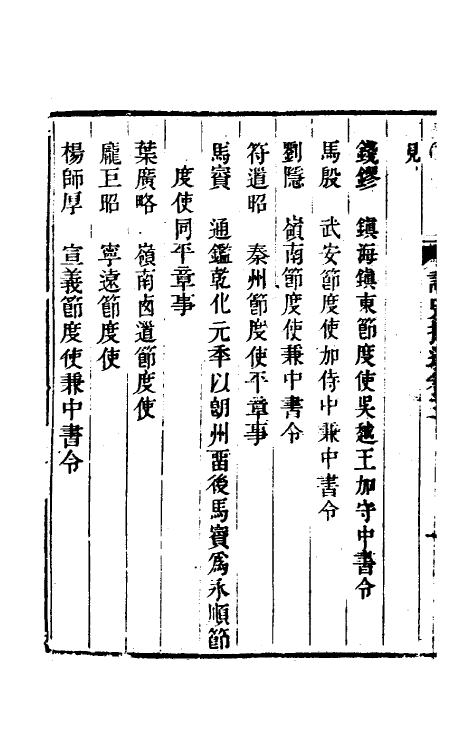 見
錢鏐 鎮海鎮東節度使吳越王加守中書令
馬殷 武安節度使加侍中兼中書令
劉隱 嶺南節度使兼中書令
符道昭 秦州節度使平章事
馬賨 通鑑乾化元年以朗州畱後馬賨爲永順節
度使同平章事
葉廣略 嶺南西道節度使
龐巨昭 寧遠節度使
楊師厚 宣義節度使兼中書令